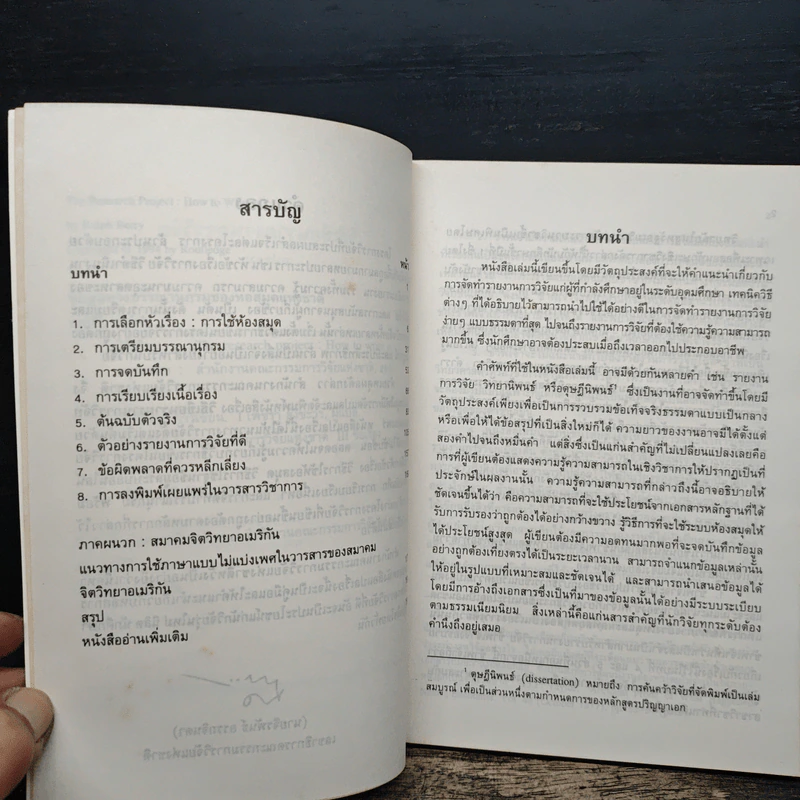 สารบัญ
บทนำ
1. การเลือกหัวเรื่อง : การใช้ห้องสมุด
2. การเตรียมบรรณานุกรม
3. การจดบันทึก
4. การเรียบเรียงเนื้อเรื่อง
5. ต้นฉบับตัวจริง
6. ตัวอย่างรายงานการวิจัยที่ดี
7. ข้อผิดพลาดที่ควรหลีกเลี่ยง
8. การลงพิมพ์เผยแพร่ในวารสารวิชาการ
ภาคผนวก : สมาคมจิตวิทยาอเมริกัน
แนวทางการใช้ภาษาแบบไม่แบ่งเพศในวารสารของสมาคม
จิตวิทยาอเมริกัน
สรุป
หนังสืออ่านเพิ่มเติม
บทนำ
หนังสือเล่มนี้เขียนขึ้นโดยมีวัตถุประสงค์ที่จะให้คำแนะนำเกี่ยวกับ
การจัดทำรายงานการวิจัยแก่ผู้ที่กำลังศึกษาอยู่ในระดับอุดมศึกษา เทคนิควิธี
ต่างๆ ที่ได้อธิบายไว้สามารถนำไปใช้ได้อย่างดีในการจัดทำรายงานการวิจัย
ง่ายๆ แบบธรรมดาที่สุด ไปจนถึงรายงานการวิจัยที่ต้องใช้ความรู้ความสามารถ
มากขึ้น ซึ่งนักศึกษาอาจต้องประสบเมื่อถึงเวลาออกไปประกอบอาชีพ
คำศัพท์ที่ใช้ในหนังสือเล่มนี้ อาจมีด้วยกันหลายคำ เช่น รายงาน
การวิจัย วิทยานิพนธ์ หรือดุษฎีนิพนธ์¹ ซึ่งเป็นงานที่อาจจัดทำขึ้นโดยมี
วัตถุประสงค์เพียงเพื่อเป็นการรวบรวมข้อเท็จจริงธรรมดาแบบเป็นกลาง
หรือเพื่อให้ได้ข้อสรุปที่เป็นสิ่งใหม่ก็ได้ ความยาวของงานอาจมีได้ตั้งแต่
สองคำไปจนถึงหมื่นคำ แต่สิ่งซึ่งเป็นแก่นสำคัญที่ไม่เปลี่ยนแปลงเลยคือ
การที่ผู้เขียนต้องแสดงความรู้ความสามารถในเชิงวิชาการให้ปรากฏเป็นที่
ประจักษ์ในผลงานนั้น ความรู้ความสามารถที่กล่าวถึงนี้อาจอธิบายให้
ชัดเจนขึ้นได้ว่า คือความสามารถที่จะใช้ประโยชน์จากเอกสารหลักฐานที่ได้
รับการรับรองว่าถูกต้องได้อย่างกว้างขวาง รู้วิธีการที่จะใช้ระบบห้องสมุดให้
ได้ประโยชน์สูงสุด ผู้เขียนต้องมีความอดทนมากพอที่จะจดบันทึกข้อมูล
อย่างถูกต้องเที่ยงตรงได้เป็นระยะเวลานาน สามารถจำแนกข้อมูลเหล่านั้น
ให้อยู่ในรูปแบบที่เหมาะสมและชัดเจนได้ และสามารถนำเสนอข้อมูลได้
โดยมีการอ้างถึงเอกสารซึ่งเป็นที่มาของข้อมูลนั้นได้อย่างมีระบบระเบียบ
ตามธรรมเนียมนิยม สิ่งเหล่านี้คือแก่นสารสำคัญที่นักวิจัยทุกระดับต้อง
คำนึงถึงอยู่เสมอ
¹ ดุษฎีนิพนธ์ (dissertation) หมายถึง การค้นคว้าวิจัยที่จัดพิมพ์เป็นเล่ม
สมบูรณ์ เพื่อเป็นส่วนหนึ่งตามกำหนดการของหลักสูตรปริญญาเอก